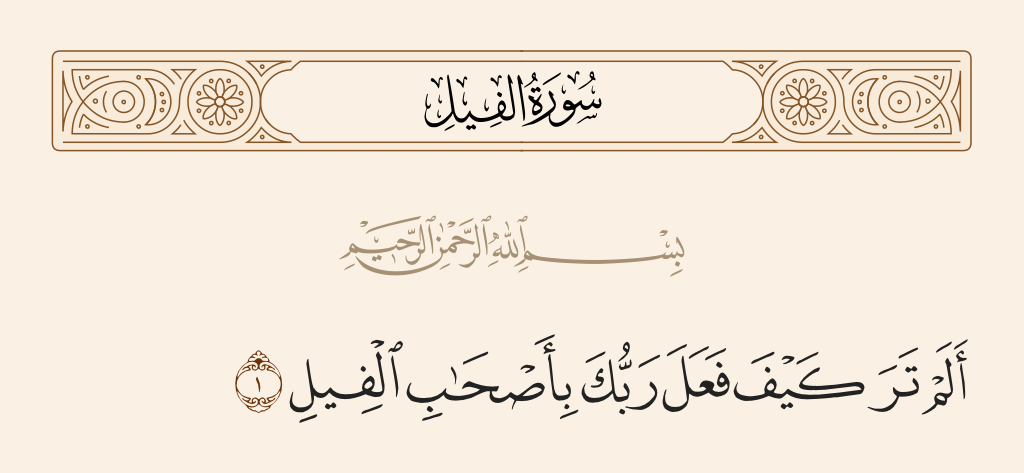 سُورَةُ الفِيلِ
بِسْمِ ٱللَّهِ ٱلرَّحْمَٰنِ ٱلرَّحِيمِ
أَلَمْ تَرَ كَيْفَ فَعَلَ رَبُّكَ بِأَصْحَٰبِ ٱلْفِيلِ ١